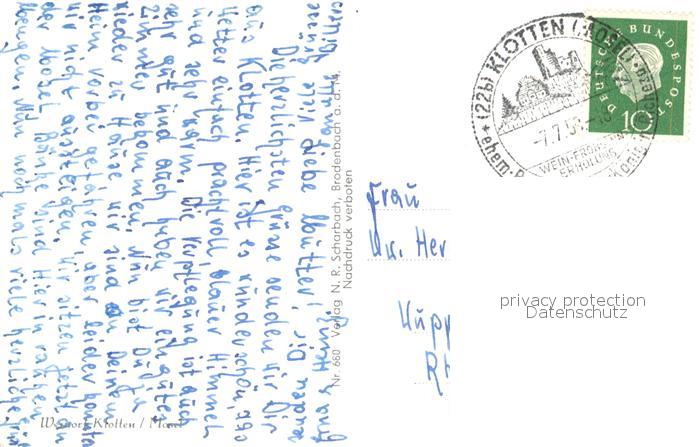 Liebe Mutter!
Die herzlichsten Grüße senden wir Dir
aus Klotten. Hier ist es wunderschön, das
Wetter einfach prachtvoll, blauer Himmel
und sehr warm. Die Verpflegung ist auch
sehr gut und auch haben wir ein gutes
Zimmer bekommen. Nun bist Du
wieder zu Hause wir sind an Deinem
Heim vorbei gefahren, aber leider konnten
wir nicht aussteigen. Wir sitzen jetzt an
der Mosel Bänke sind hier in rauhen
Mengen. Nun nochmals viele herzliche
Grüße
Heinz
Nr. 660 Verlag N. R. Scharbach, Brodenbach a. d. M.
Nachdruck verboten
Klotten / Mosel
(22b) KLOTTEN (MOSEL)
-7.7.
WEIN-FROHSINN
ERHOLUNG
DEUTSCHE BUNDESPOST
10
Frau
Ww. Her
Wupp
Rh
privacy protection
Datenschutz